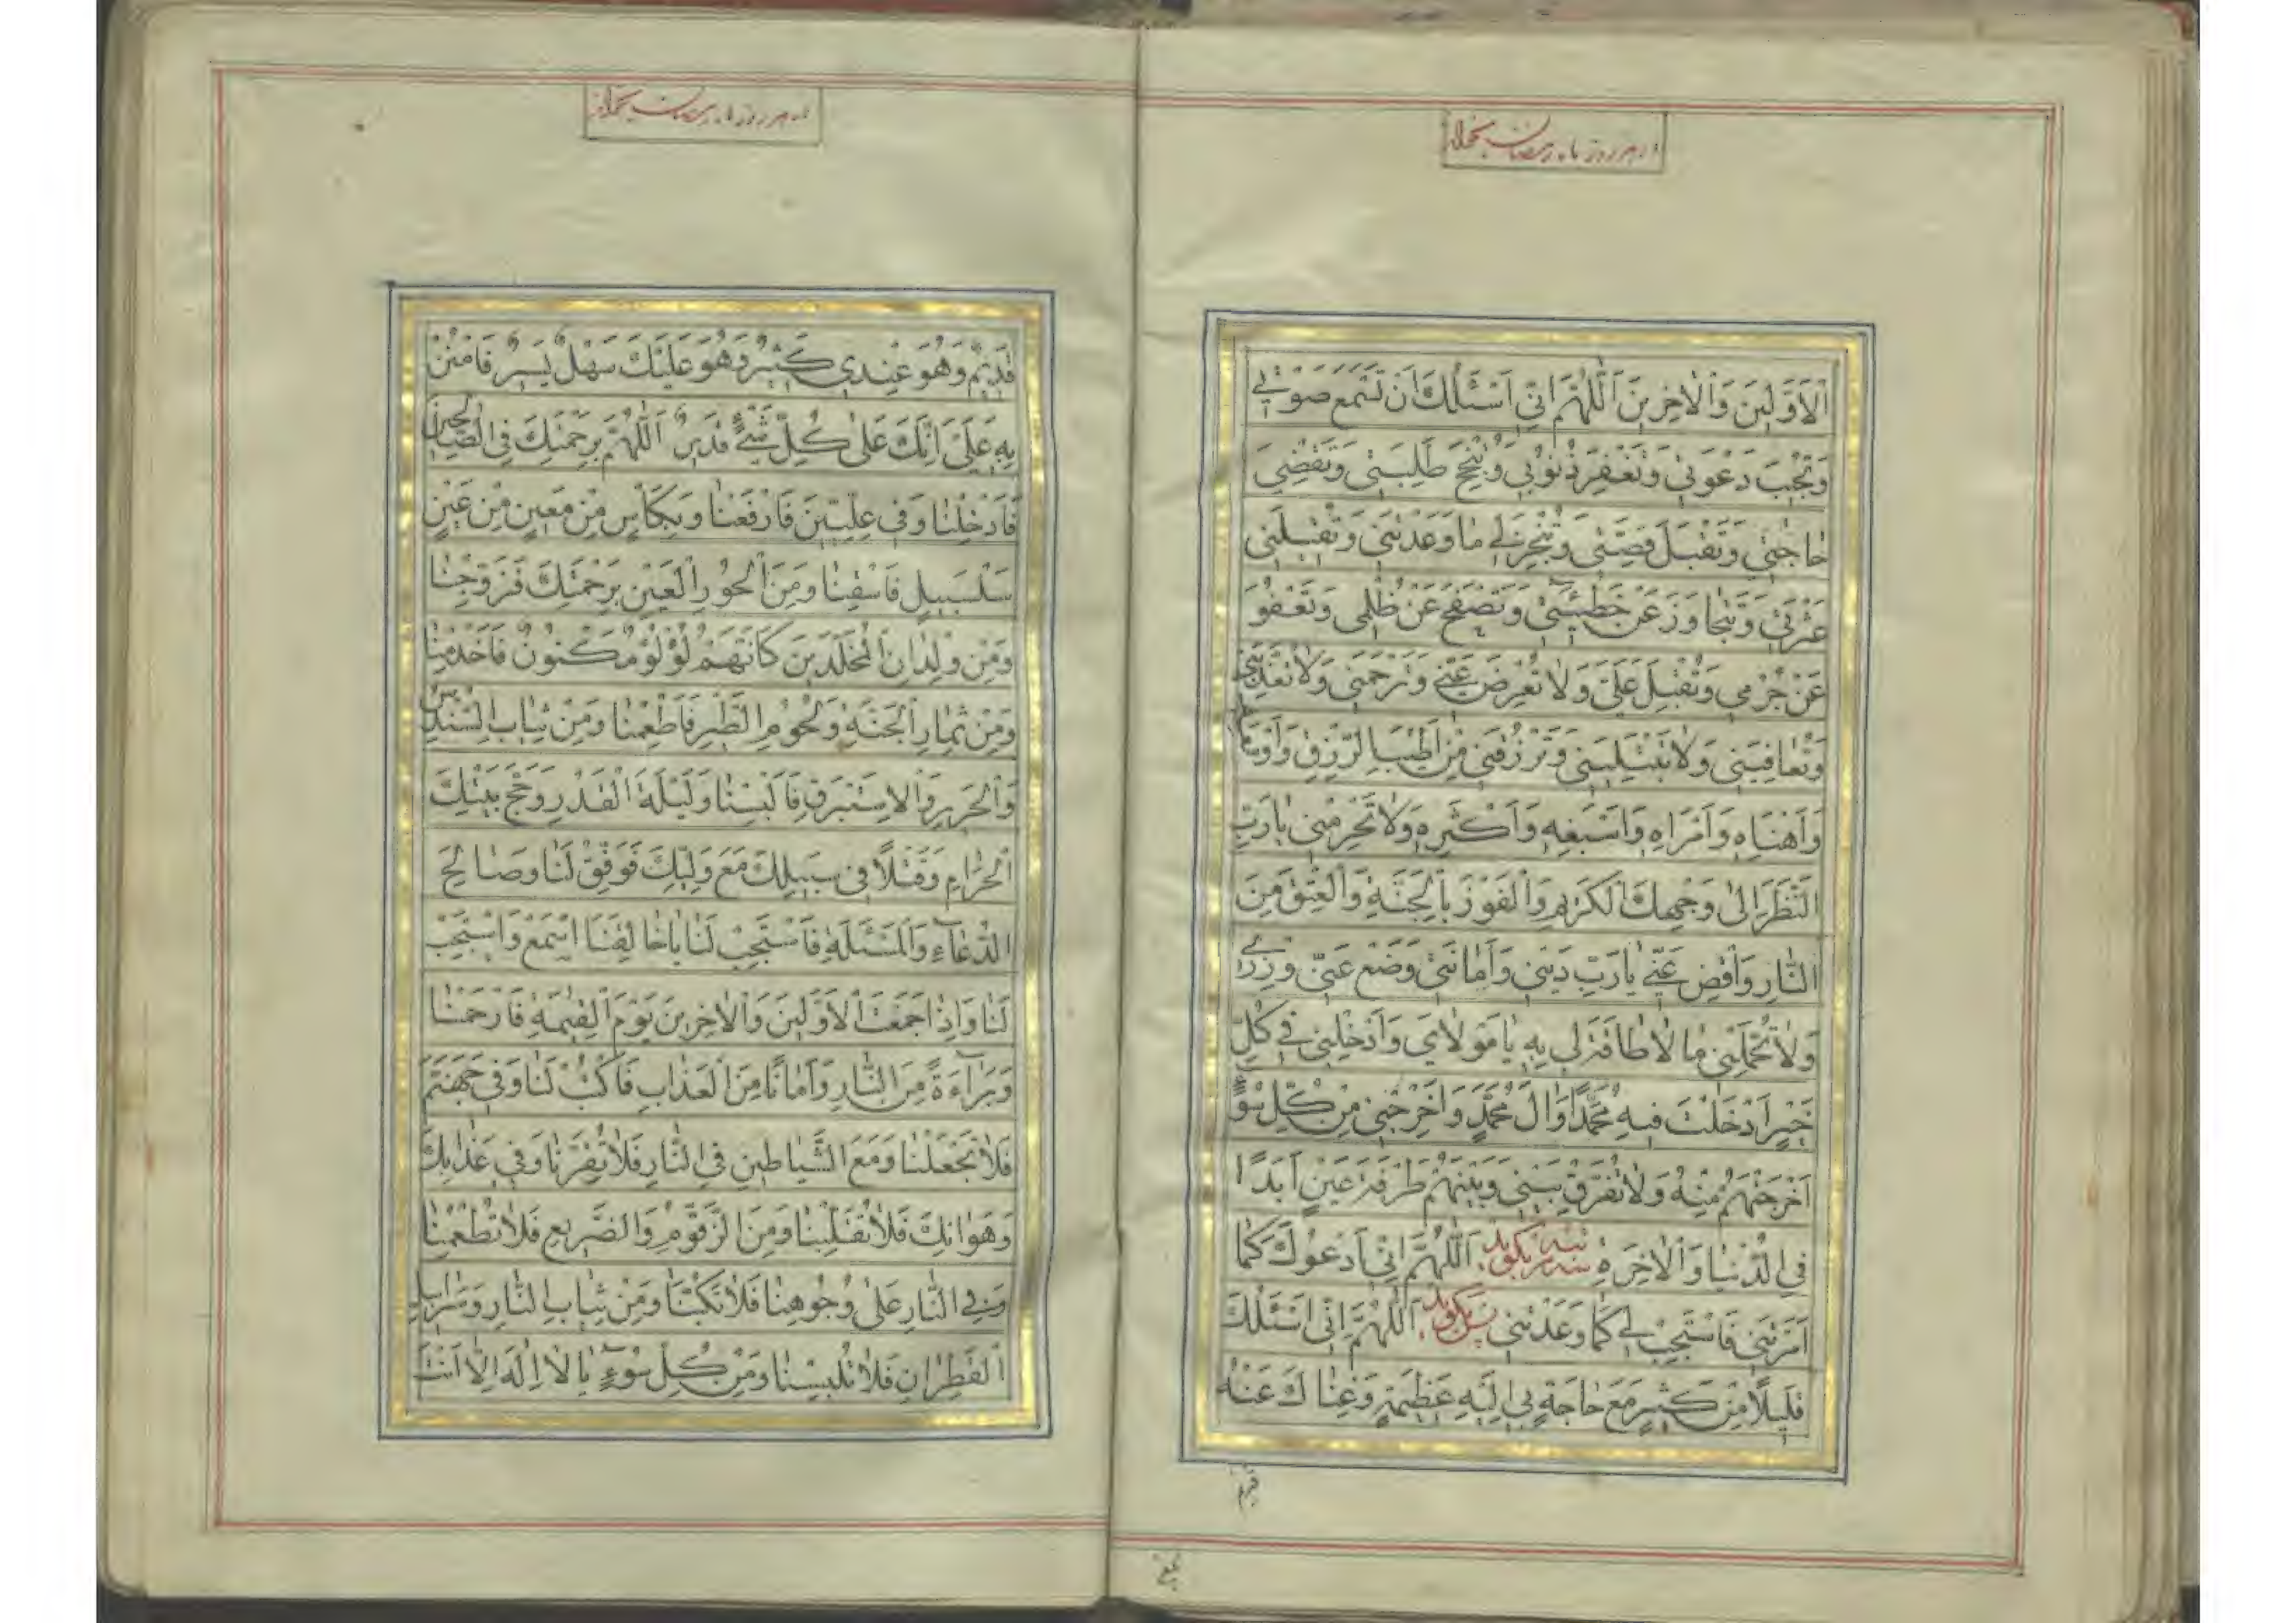 در هر روز ماه رمضان بخواند
الْاَوَّلينَ وَالْاخِرينَ اَللّهُمَّ اِنّي اَسْئَلُكَ اَنْ تَسْمَعَ صَوْتي
وَتُجْيبَ دَعْوَتي وَتَغْفِرَ ذُنُوبي وَتُنْجِحَ طَلِبَتي وَتَقْضِيَ
حاجَتي وَتَقْبَلَ قِصَّتي وَتُنْجِزَ لي ما وَعَدْتَني وَتُقْيلَني
عَثْرَتي وَتَتَجاوَزَ عَنْ خَطيئَتي وَتَصْفَحَ عَنْ ظُلْمي وَتَعْفُوَ
عَنْ جُرْمي وَتُقْبِلَ عَلَيَّ وَلا تُعْرِضَ عَنّي وَتَرْحَمَني وَلا تُعَذِّبَني
وَتُعافِيَني وَلا تَبْتَلِيَني وَتَرْزُقَني مِنْ اَطْيَبِ الرِّزْقِ وَاَوْسَعِهِ
وَاَهْنَاِهِ وَاَمْرَاِهِ وَاَسْبَغِهِ وَاَكْثَرِهِ وَلا تَحْرِمْني يا رَبِّ
النَّظَرَ اِلى وَجْهِكَ الْكَريمِ وَالْفَوْزَ بِالْجَنَّةِ وَالْعِتْقَ مِنَ
النّارِ وَاقْضِ عَنّي يا رَبِّ دَيْني وَاَمانَتي وَضَعْ عَنّي وِزْري
وَلا تُحَمِّلْني ما لا طاقَةَ لي بِهِ يا مَوْلايَ وَاَدْخِلْني في كُلِّ
خَيْرٍ اَدْخَلْتَ فيهِ مُحَمَّدًا وَالَ مُحَمَّدٍ وَاَخْرِجْني مِنْ كُلِّ سُوءٍ
اَخْرَجْتَهُمْ مِنْهُ وَلا تُفَرِّقْ بَيْني وَبَيْنَهُمْ طَرْفَةَ عَيْنٍ اَبَدًا
فِي الدُّنْيا وَالْاخِرَةِ سه مرتبه بگويد اَللّهُمَّ اِنّي اَدْعُوكَ كَما
اَمَرْتَني فَاسْتَجِبْ لي كَما وَعَدْتَني پس بگويد اَللّهُمَّ اِنّي اَسْئَلُكَ
قَليلًا مِنْ كَثيرٍ مَعَ حاجَةٍ بي اِلَيْهِ عَظيمَةٍ وَغِناكَ عَنْهُ
قديم
در هر روز ماه رمضان بخواند
قَديمٌ وَهُوَ عِنْدي كَثيرٌ وَهُوَ عَلَيْكَ سَهْلٌ يَسيرٌ فَامْنُنْ
بِهِ عَلَيَّ اِنَّكَ عَلى كُلِّ شَيْءٍ قَديرٌ اَللّهُمَّ بِرَحْمَتِكَ فِي الصّالِحينَ
فَاَدْخِلْنا وَفي عِلِّيّينَ فَارْفَعْنا وَبِكَاْسٍ مِنْ مَعينٍ مِنْ عَيْنٍ
سَلْسَبيلٍ فَاسْقِنا وَمِنَ الْحُورِ الْعينِ بِرَحْمَتِكَ فَزَوِّجْنا
وَمِنْ وِلْدانِ الْمُخَلَّدينَ كَاَنَّهُمْ لُؤْلُؤٌ مَكْنُونٌ فَاَخْدِمْنا
وَمِنْ ثِمارِ الْجَنَّةِ وَلُحُومِ الطَّيْرِ فَاَطْعِمْنا وَمِنْ ثِيابِ السُّنْدُسِ
وَالْحَريرِ وَالْاِسْتَبْرَقِ فَاَلْبِسْنا وَلَيْلَةَ الْقَدْرِ وَحَجَّ بَيْتِكَ
الْحَرامِ وَقَتْلًا في سَبيلِكَ مَعَ وَلِيِّكَ فَوَفِّقْ لَنا وَصالِحَ
الدُّعاءِ وَالْمَسْئَلَةِ فَاسْتَجِبْ لَنا يا خالِقَنَا اسْمَعْ وَاسْتَجِبْ
لَنا وَاِذا جَمَعْتَ الْاَوَّلينَ وَالْاخِرينَ يَوْمَ الْقِيمَةِ فَارْحَمْنا
وَبَراءَةً مِنَ النّارِ وَاَمانًا مِنَ الْعَذابِ فَاكْتُبْ لَنا وَفي جَهَنَّمَ
فَلا تَجْعَلْنا وَمَعَ الشَّياطينِ فِي النّارِ فَلا تَقْرِنّا وَفي عَذابِكَ
وَهَوانِكَ فَلا تَقْلِبْنا وَمِنَ الزَّقُّومِ وَالضَّريعِ فَلا تُطْعِمْنا
وَفِي النّارِ عَلى وُجُوهِنا فَلا تَكُبَّنا وَمِنْ ثِيابِ النّارِ وَسَرابيلِ
الْقَطِرانِ فَلا تُلْبِسْنا وَمِنْ كُلِّ سُوءٍ يا لا اِلهَ اِلّا اَنْتَ